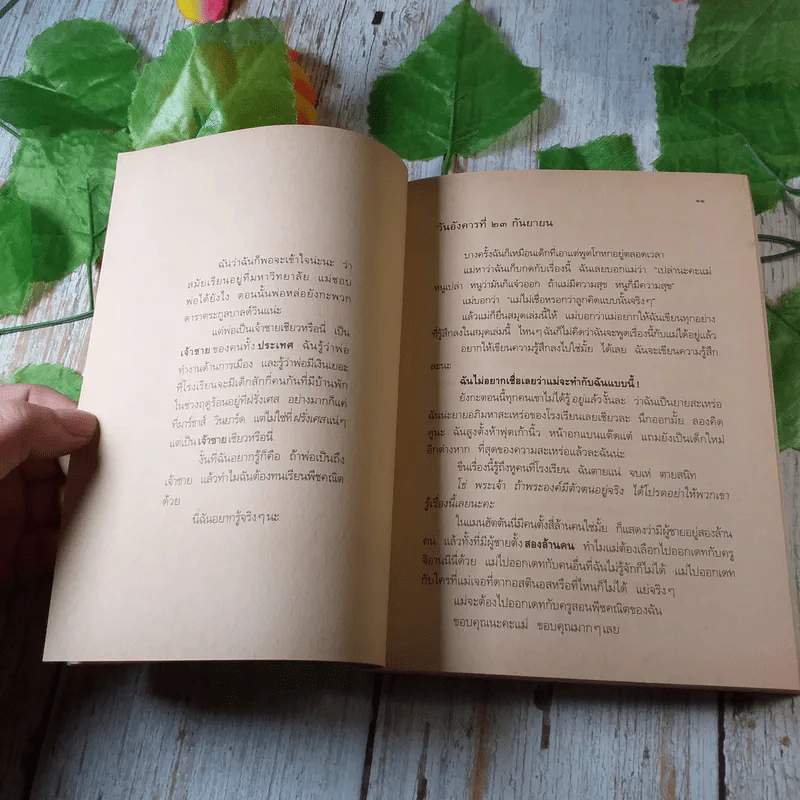 ฉันว่าฉันก็พอจะเข้าใจน่ะนะ ว่า
สมัยเรียนอยู่ที่มหาวิทยาลัย แม่ชอบ
พ่อได้ยังไง ตอนนั้นพ่อหล่อยังกะพวก
ดาราตระกูลบาลด์วินแน่ะ
แต่พ่อเป็นเจ้าชายเชียวหรือนี่ เป็น
เจ้าชาย ของคนทั้ง ประเทศ ฉันรู้ว่าพ่อ
ทำงานด้านการเมือง และรู้ว่าพ่อมีเงินเยอะ
ที่โรงเรียนจะมีเด็กสักกี่คนกันที่มีบ้านพัก
ในช่วงฤดูร้อนอยู่ที่ฝรั่งเศส อย่างมากก็แค่
ที่มาร์ธาส์ วินยาร์ด แต่ไม่ใช่ที่ ฝรั่งเศส แน่ๆ
แต่เป็น เจ้าชาย เชียวหรือนี่
งั้นที่ฉันอยากรู้ก็คือ ถ้าพ่อเป็นถึง
เจ้าชาย แล้วทำไมฉันต้องทนเรียนพีชคณิต
ด้วย
นี่ฉันอยากรู้จริงๆ นะ
๑๑
วันอังคารที่ ๒๓ กันยายน
บางครั้งฉันก็เหมือนเด็กที่เอาแต่พูดโกหกอยู่ตลอดเวลา
แม่หาว่าฉันเก็บกดกับเรื่องนี้ ฉันเลยบอกแม่ว่า "เปล่านะคะแม่
หนูเปล่า หนูว่ามันก็แจ๋วออก ถ้าแม่มีความสุข หนูก็มีความสุข"
แม่บอกว่า "แม่ไม่เชื่อหรอกว่าลูกคิดแบบนั้นจริงๆ"
แล้วแม่ก็ยื่นสมุดเล่มนี้ให้ แม่บอกว่าแม่อยากให้ฉันเขียนทุกอย่าง
ที่รู้สึกลงในสมุดเล่มนี้ ไหนๆ ฉันก็ไม่คิดว่าฉันจะพูดเรื่องนี้กับแม่ได้อยู่แล้ว
อยากให้เขียนความรู้สึกลงไปใช่มั้ย ได้เลย ฉันจะเขียนความรู้สึก
ละนะ
ฉันไม่อยากเชื่อเลยว่าแม่จะทำกับฉันแบบนี้!
ยังกะตอนนี้ทุกคนเขาไม่ได้รู้อยู่แล้วงั้นละ ว่าฉันเป็นยายสะเหร่อ
ฉันน่ะยายอภิมหาสะเหร่อของโรงเรียนเลยเชียวละ นึกออกมั้ย ลองคิด
ดูนะ ฉันสูงตั้งห้าฟุตเก้านิ้ว หน้าอกแบนแต๊ดแต๋ แถมยังเป็นเด็กใหม่
อีกต่างหาก ที่สุดของความสะเหร่อแล้วละฉันน่ะ
ขืนเรื่องนี้รู้ถึงหูคนที่โรงเรียน ฉันตายแน่ จบเห่ ตายสนิท
โธ่ พระเจ้า ถ้าพระองค์มีตัวตนอยู่จริง ได้โปรดอย่าให้พวกเขา
รู้เรื่องนี้เลยนะคะ
ในแมนฮัตตันนี่มีคนตั้งสี่ล้านคนใช่มั้ย ก็แสดงว่ามีผู้ชายอยู่สองล้าน
คน แล้วทั้งที่มีผู้ชายตั้ง สองล้านคน ทำไมแม่ต้องเลือกไปออกเดทกับครู
จิอานนินีด้วย แม่ไปออกเดทกับคนอื่นที่ฉันไม่รู้จักก็ไม่ได้ แม่ไปออกเดท
กับใครที่แม่เจอที่ดากอสติโนสหรือที่ไหนก็ไม่ได้ แย่จริงๆ
แม่จะต้องไปออกเดทกับครูสอนพีชคณิตของฉัน
ขอบคุณนะคะแม่ ขอบคุณมากๆ เลย